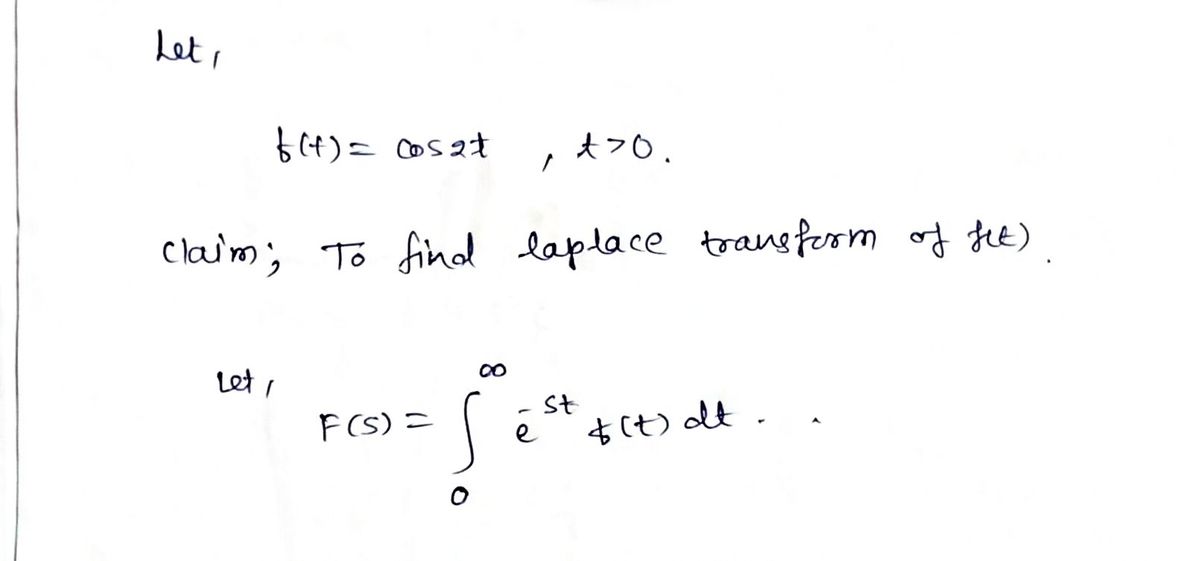 Let,
f(t) = cos2t , t>0.
claim; To find laplace transform of f(t).
Let,
F(S) = ∫₀^∞ e^{-st} f(t) dt . .